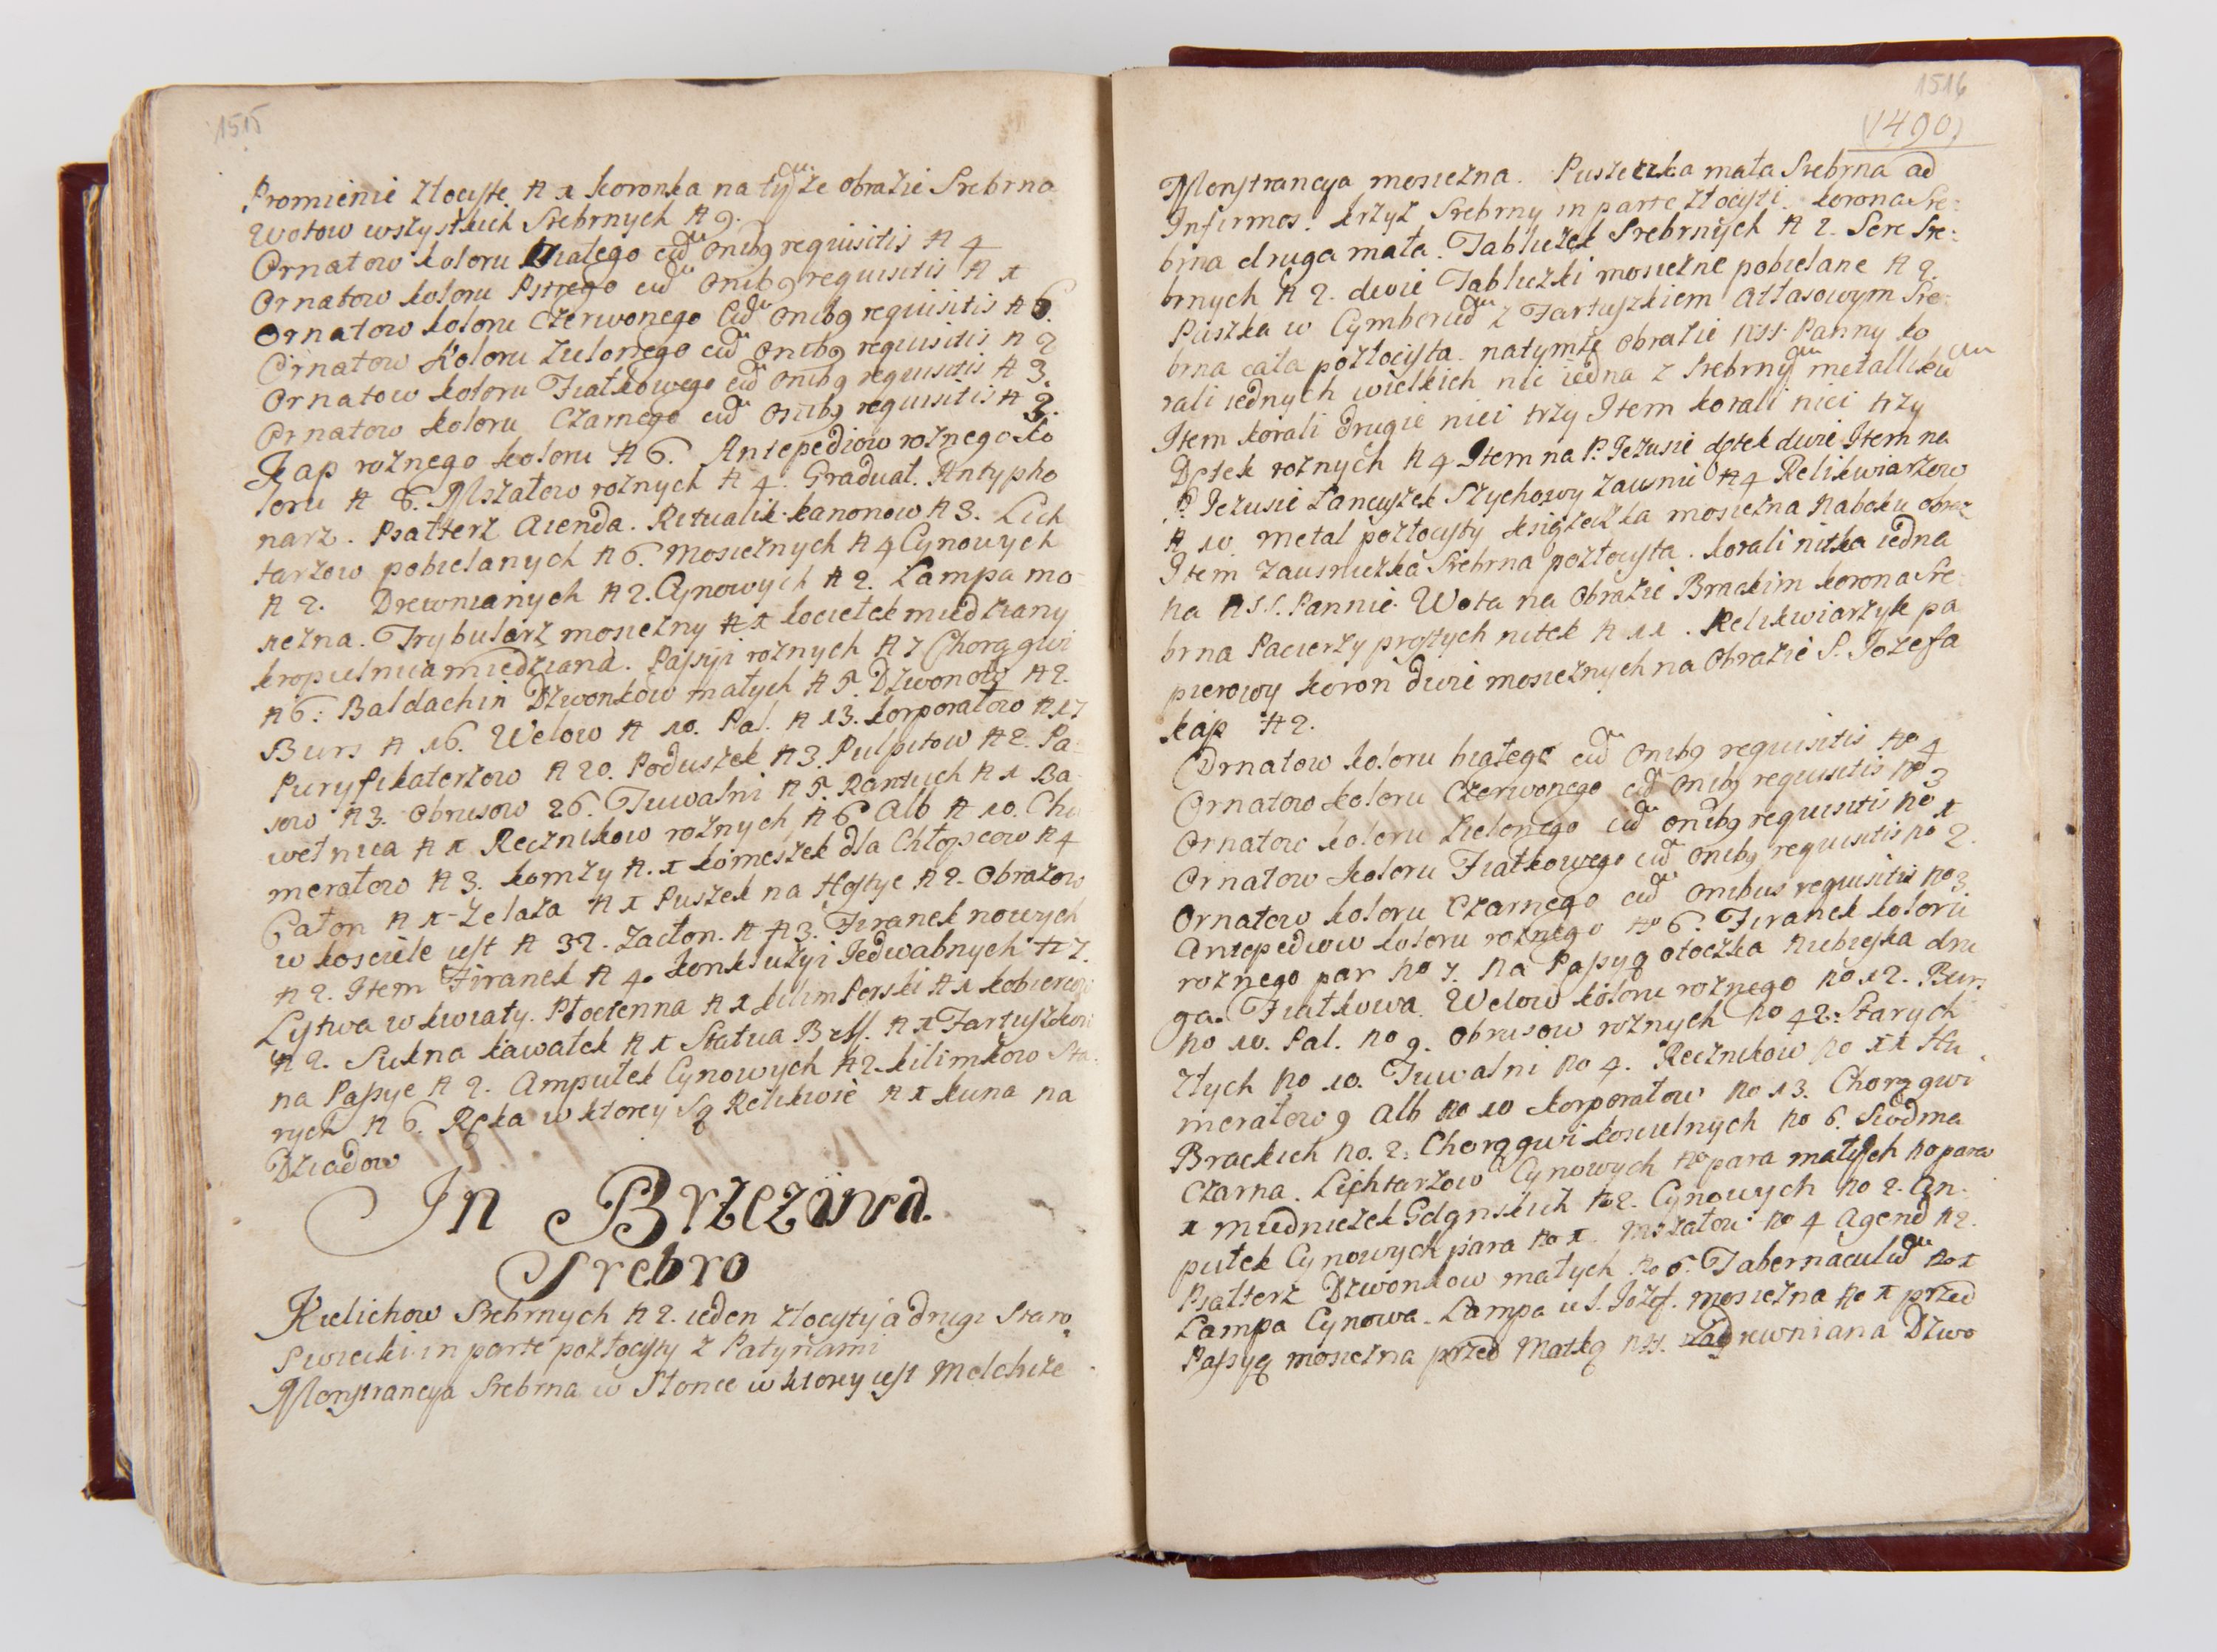 1515
Promienie złociste N 1 koronka na tymże obrazie Srebrna
Wotow wszystkich Srebrnych N 9.
Ornatow koloru Białego cum onibq requisitis N 4
Ornatow koloru Pstrego cum onibq requisitis N 1
Ornatow koloru Czerwonego cum onibq requisitis N 6.
Ornatow Koloru Zielonego cum onibq requisitis N 2
Ornatow koloru Fiałkowego cum onibq requisitis N 3.
Ornatow koloru Czarnego cum onibq requisitis N 3.
Kap rożnego koloru N 6. Antepediow rożnego ko
loru N 6. Mszałow rożnych N 4. Graduał. Antypho
narz. Psałterz Aienda. Rituałik. kanonow N 3. Lich
tarzow pobielanych N 6. mosieżnych N 4 Cynowych
N 2. Drewnianych N 2. Cynowych N 2. Lampa mo
sieżna. Trybularz mosieżny N 1 kociełek miedziany
kropielnica miedziana. Passyi rożnych N 7 Chorągwi
N 6: Baldachin Dzwonkow małych N 5. Dzwonow N 2.
Burs N 16. Welow N 10. Pal. N 13. korporałow N 17
Puryfikaterzow N 20. Poduszek N 3. Pulpitow N 2. Pa
sow N 3. Obrusow 26. Tuwalni N 5. Rantuch N 1 Ba
wełnica N 1 Recznikow rożnych N 6 Alb N 10. Chu
merałow N 3. komży N. 1 komeszek dla Chłopcow N 4
Gaton N 1 - Żelaza N 1 Puszek na Hostye N 2. Obrazow
w kosciele iest N 32. Zacłon. N N 3. Firanek nowych
N 2. Item Firanek N 4. konkluzyi Jedwabnych N 7.
Lystwa w kwiaty. Płocienna N 1 kilim Perski N 1 kobiercow
N 2. Sukna kawałek N 1 Statua B N 1 Fartuszkow
na Passye N 2. Ampułek Cynowych N 2. kilimkow Sta
rych N 6. Ręka w ktorey są Relikwie N 1 kuna na
Dziadow
In Brzeziwa.
Srebro
Kielichow Srebrnych N 2. ieden złocysty a drugi Staro
Swiecki in parte pozłocysty z Patynami
Monstrancya Srebrna w Słonce w ktorey iest Melchize
1516
(1490)
Monstrancya mosieżna. Puszeczka mała Srebrna ad
Infirmos. krzyż Srebrny in parte złocisti. korona Sre:
brna druga mała. Tabliczek Srebrnych N 2. Serc Sre:
brnych N 2. dwie Tabliczki mosieżne pobielane N 2.
Puszka w Cymborium z Fartuszkiem Attasowym Sre:
brna cała pozłocista. na tymże obrazie NSS. Panny ko
rali iednych wielkich nić iedna z Srebrnym metallikiem
Item korali drugie nici trzy Item korali nici trzy
Dętek rożnych N 4 Item na P. Jezusie dętek dwie Item na
P. Jezusie Łancuszek Szychowy Zausnic N 4 Relikwiarzow
N 10. metal pozłocysty ksiązeczka mosieżna Naboku obraz
Item Zauszniczka Srebrna pozłocysta. korali nitka iedna
na NSS. Pannie. Wota na Obrazie Brackim korona Sre:
brna Pacierzy prostych nitek N 11. Relikwiarzyk pa
pierowy koron dwie mosieżnych na Obrazie S. Jozefa
kap N 2.
Ornatow koloru białego cum onibq requisitis No 4
Ornatow koloru Czerwonego cum onibq requisitis No 3
Ornatow koloru Zielonego cum onibq requisitis No 1
Ornatow koloru Fiałkowego cum onibq requisitis No 2.
Ornatow koloru Czarnego cum onibus requisitis No 3.
Antepediow koloru rożnego No 6. Firanek koloru
rożnego par No 7. Na Passyą otoczka niebieska dru
ga. Fiałkowa. Welow koloru rożnego No 12. Burs
No 10. Pal. No 9. Obrusow rożnych No 42: Starych
złych No 10. Tuwalni No 4. Recznikow No 11 Hu
merałow 9 Alb No 10 korporałow No 13. Chorągwi
Brackich No. 2: Chorągwi koscielnych No 6. Siodma
Czarna. Lichtarzow Cynowych No para małych No para
1 miedniczek Gdąnskich No 2. Cynowych No 2. Am
pułek Cynowych para No 1. Mszałow No 4 Agend N 2.
Psałterz Dzwonkow małych No 6. Tabernaculum No 1
Lampa Cynowa. Lampa u S. Jozef. mosieżna No 1 przed
Passyą mosieżna przed Matką NSS. drewniana Dzwo